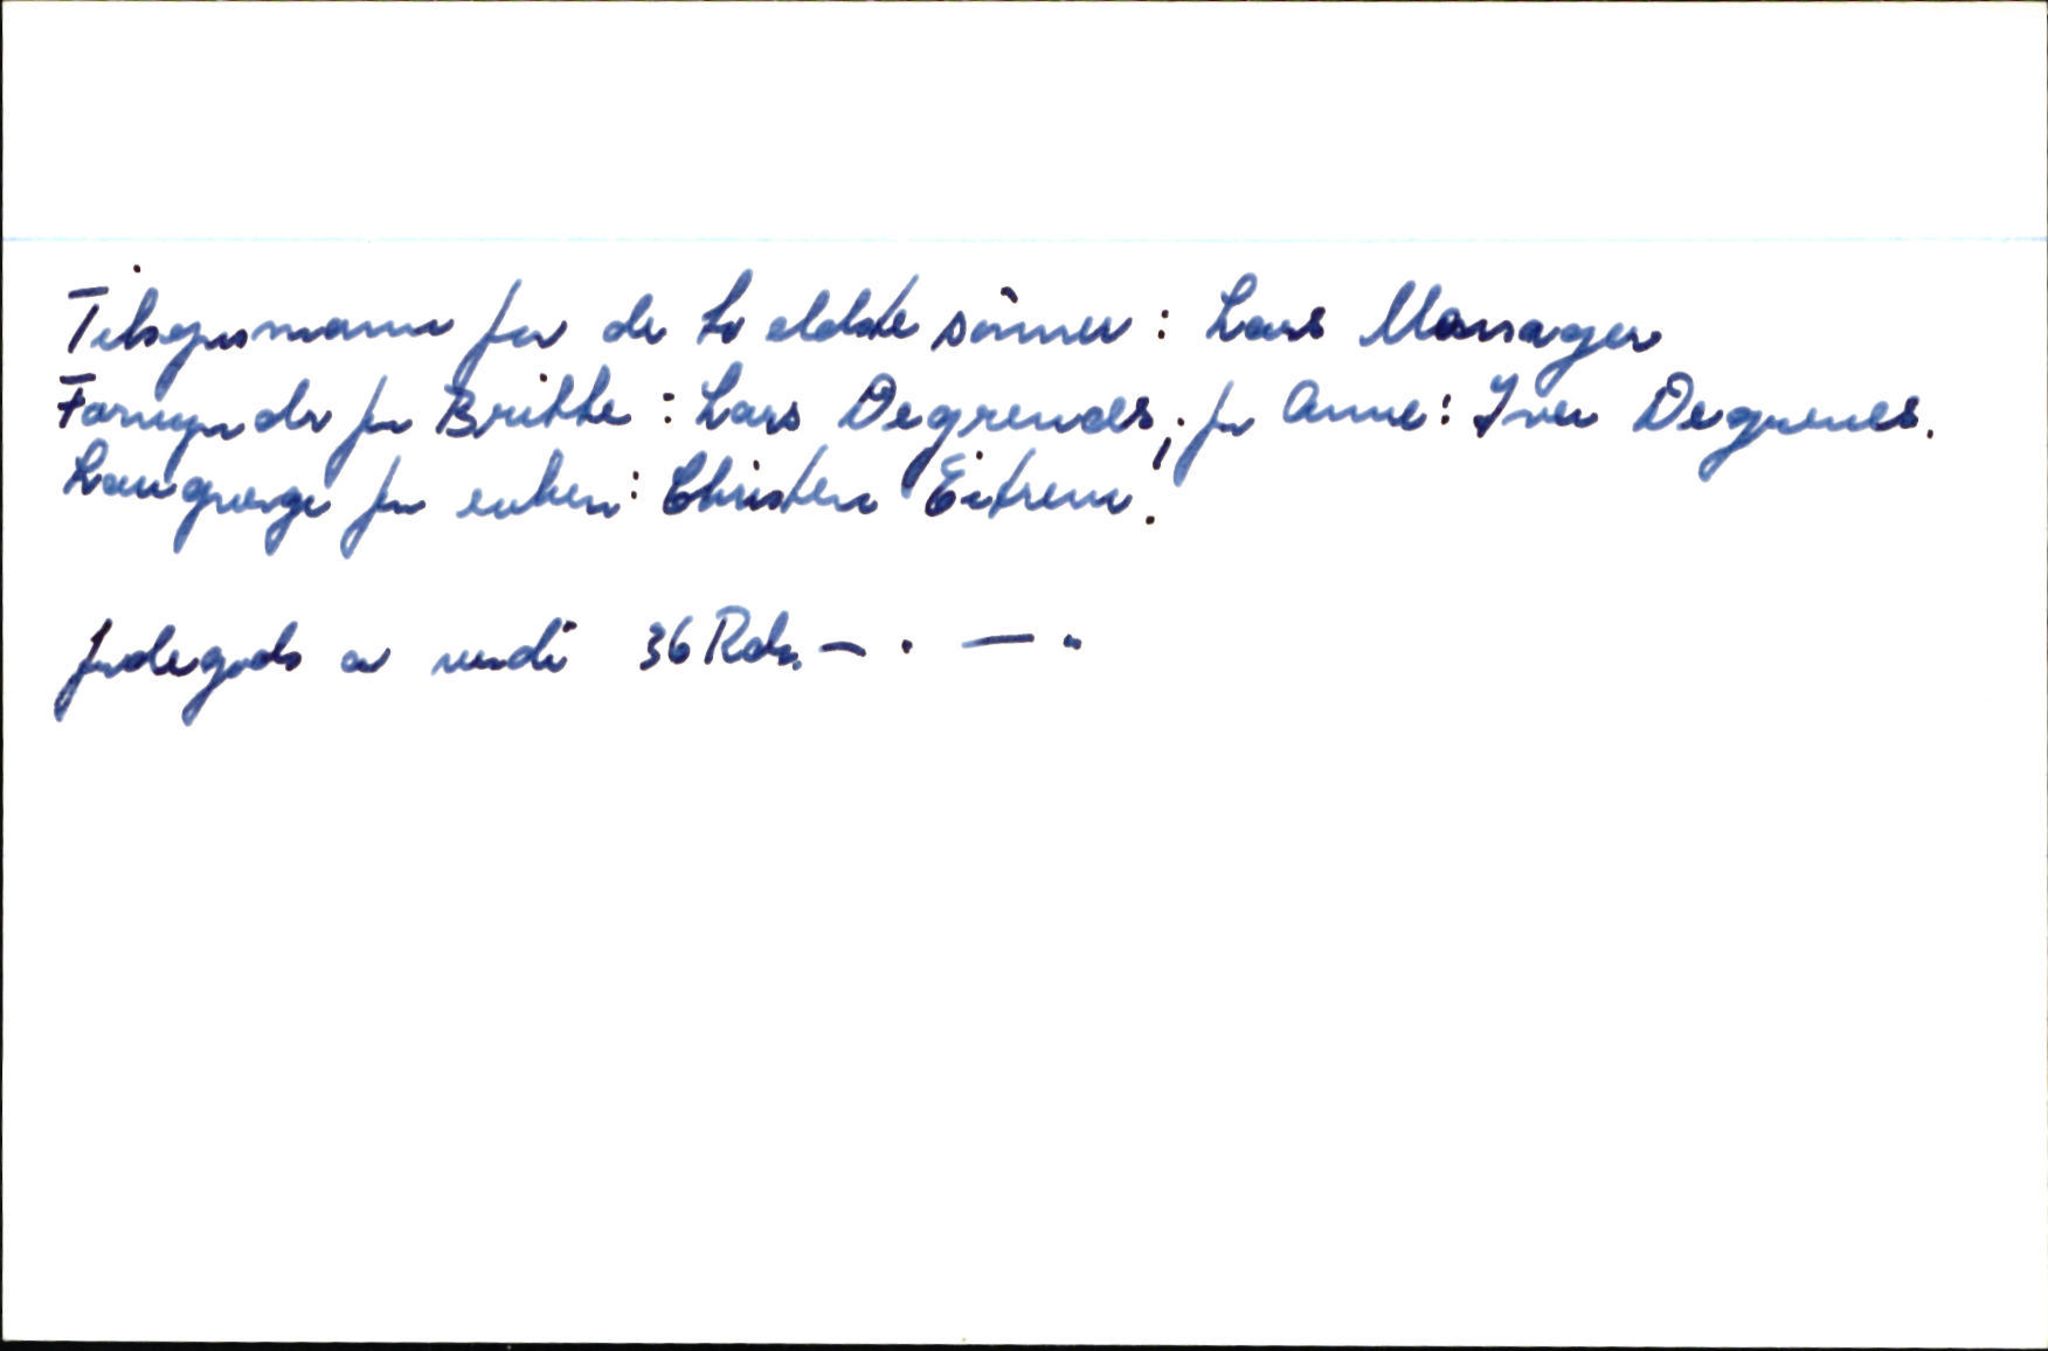 Tilsynsmann for de to eldste sønner: Lars Mosnager
Formynder for Britthe: Lars Degrenæs; for Anne: Iver Degrenes.
Laugverge for enken: Christen Eitrem.
Jordegods av verdi 36 Rdr. — . — "